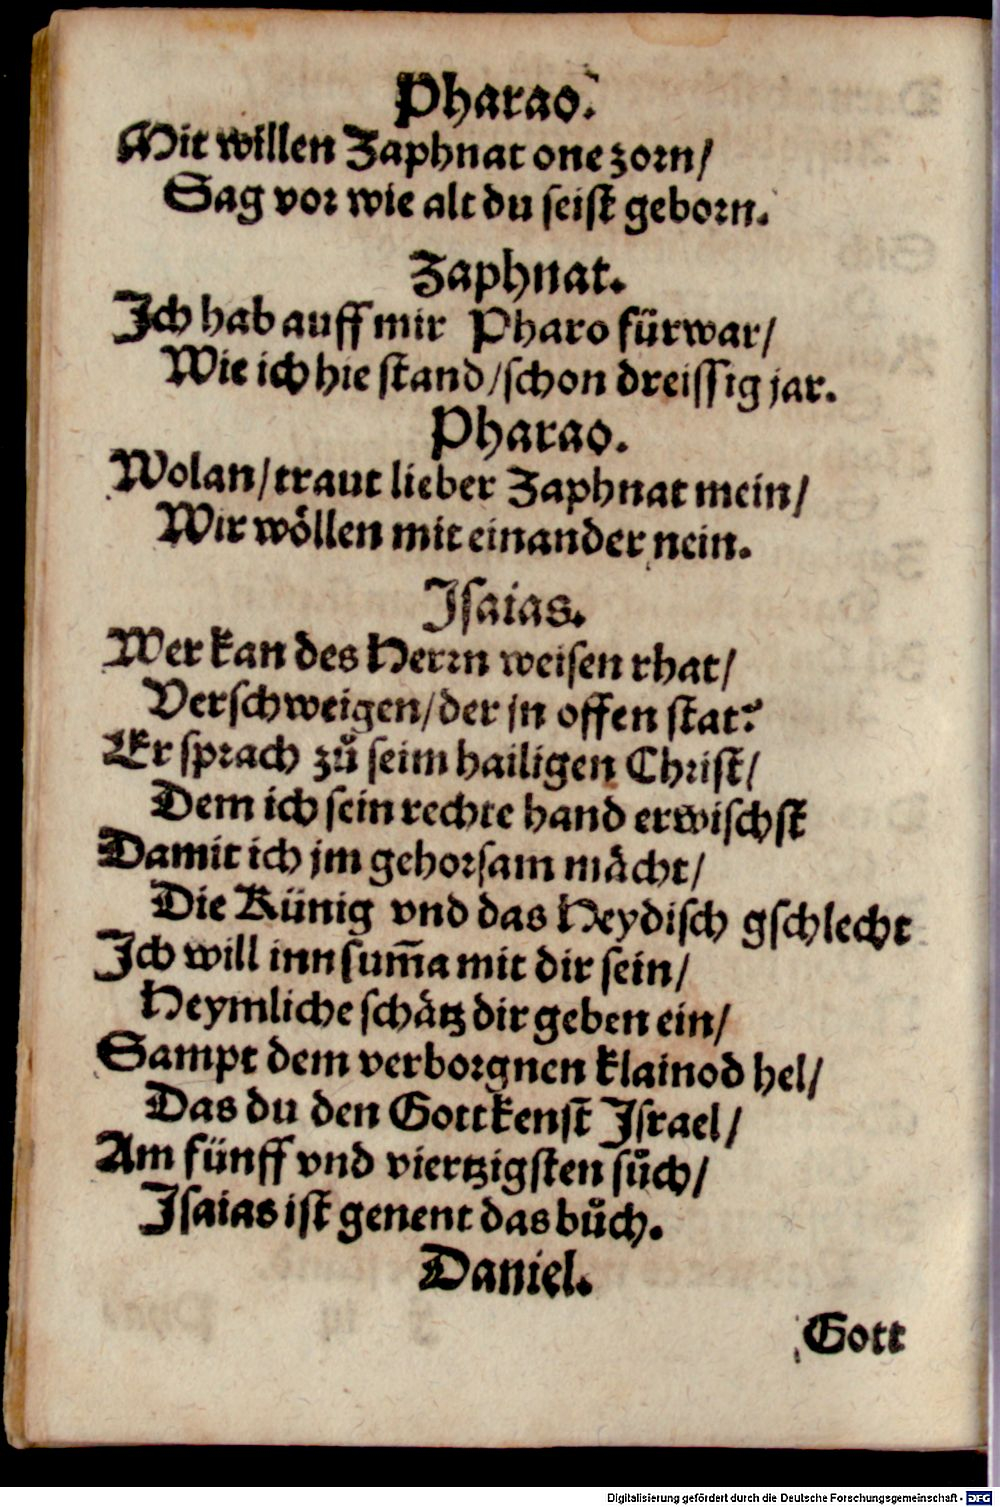 Pharao.
Mit willen Zaphnat one zorn/
Sag vor wie alt du seist geborn.
Zaphnat.
Ich hab auff mir Pharo fürwar/
Wie ich hie stand/schon dreissig jar.
Pharao.
Wolan/traut lieber Zaphnat mein/
Wir wöllen mit einander nein.
Isaias.
Wer kan des Herrn weisen rhat/
Verschweigen/der in offen stat?
Er sprach zů seim hailigen Christ/
Dem ich sein rechte hand erwischst
Damit ich jm gehorsam mächt/
Die Künig vnd das Heydisch gschlecht
Ich will inn sum̃a mit dir sein/
Heymliche schätz dir geben ein/
Sampt dem verborgnen klainod hel/
Das du den Gott kenst Israel/
Am fünff vnd viertzigsten sůch/
Isaias ist genent das bůch.
Daniel.
Gott
Digitalisierung gefördert durch die Deutsche Forschungsgemeinschaft - DFG